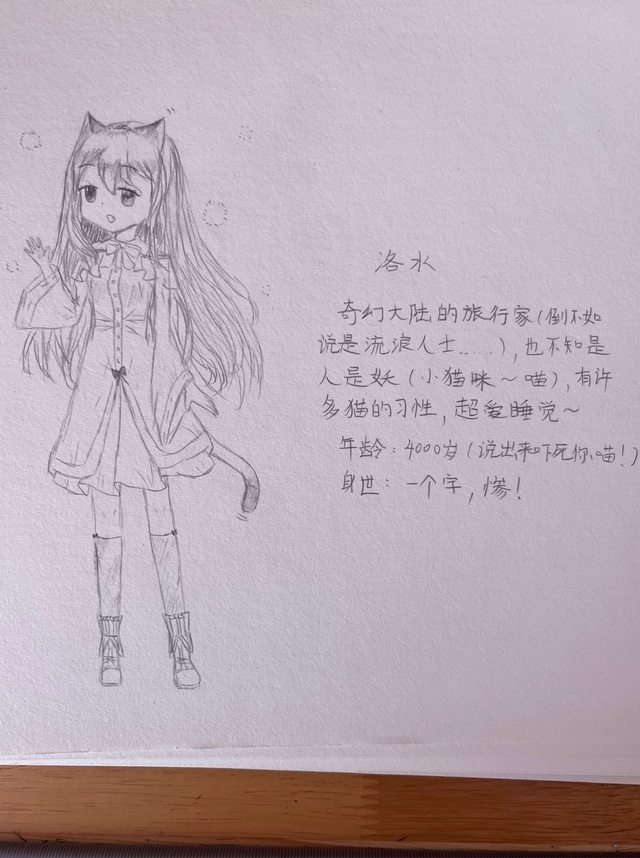 洛水
奇幻大陆的旅行家(倒不如
说是流浪人士……),也不知是
人是妖(小猫咪～喵),有许
多猫的习性,超爱睡觉～
年龄:4000岁(说出来吓死你喵!)
身世:一个字,惨!